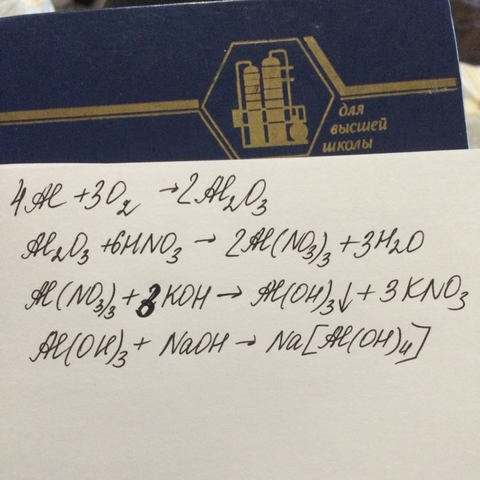 для
высшей
школы
4Al + 3O₂ → 2Al₂O₃
Al₂O₃ + 6HNO₃ → 2Al(NO₃)₃ + 3H₂O
Al(NO₃)₃ + 3KOH → Al(OH)₃↓ + 3KNO₃
Al(OH)₃ + NaOH → Na[Al(OH)₄]